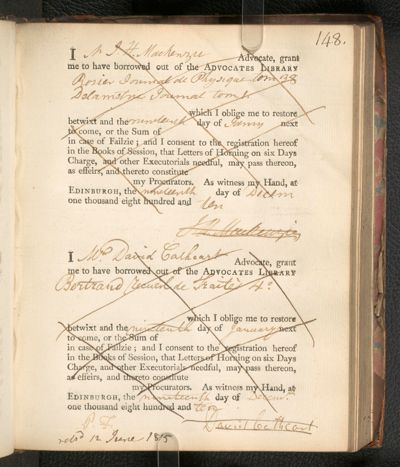 148.
I Mr J. H. Mackenzie Advocate, grant
me to have borrowed out of the ADVOCATES LIBRARY
Rosier Journal de Physique tom 38
Journal tom
which I oblige me to restore
betwixt and the nineteenth day of next
to come, or the Sum of
in case of Failzie; and I consent to the registration hereof
in the Books of Session, that Letters of Horning on six Days
Charge, and other Executorials needful, may pass thereon,
as effeirs, and thereto constitute
my Procurators. As witness my Hand, at
EDINBURGH, the nineteenth day of Decem
one thousand eight hundred and ten
Mackenzie
I Mr David Cathcart Advocate, grant
me to have borrowed out of the ADVOCATES LIBRARY
Bertrand Recueil de Traites 4o
which I oblige me to restore
betwixt and the nineteenth day of January next
to come, or the Sum of
in case of Failzie; and I consent to the registration hereof
in the Books of Session, that Letters of Horning on six Days
Charge, and other Executorials needful, may pass thereon,
as effeirs, and thereto constitute
my Procurators. As witness my Hand, at
EDINBURGH, the nineteenth day of
one thousand eight hundred and ten
David Cathcart
retd 12 June 1815